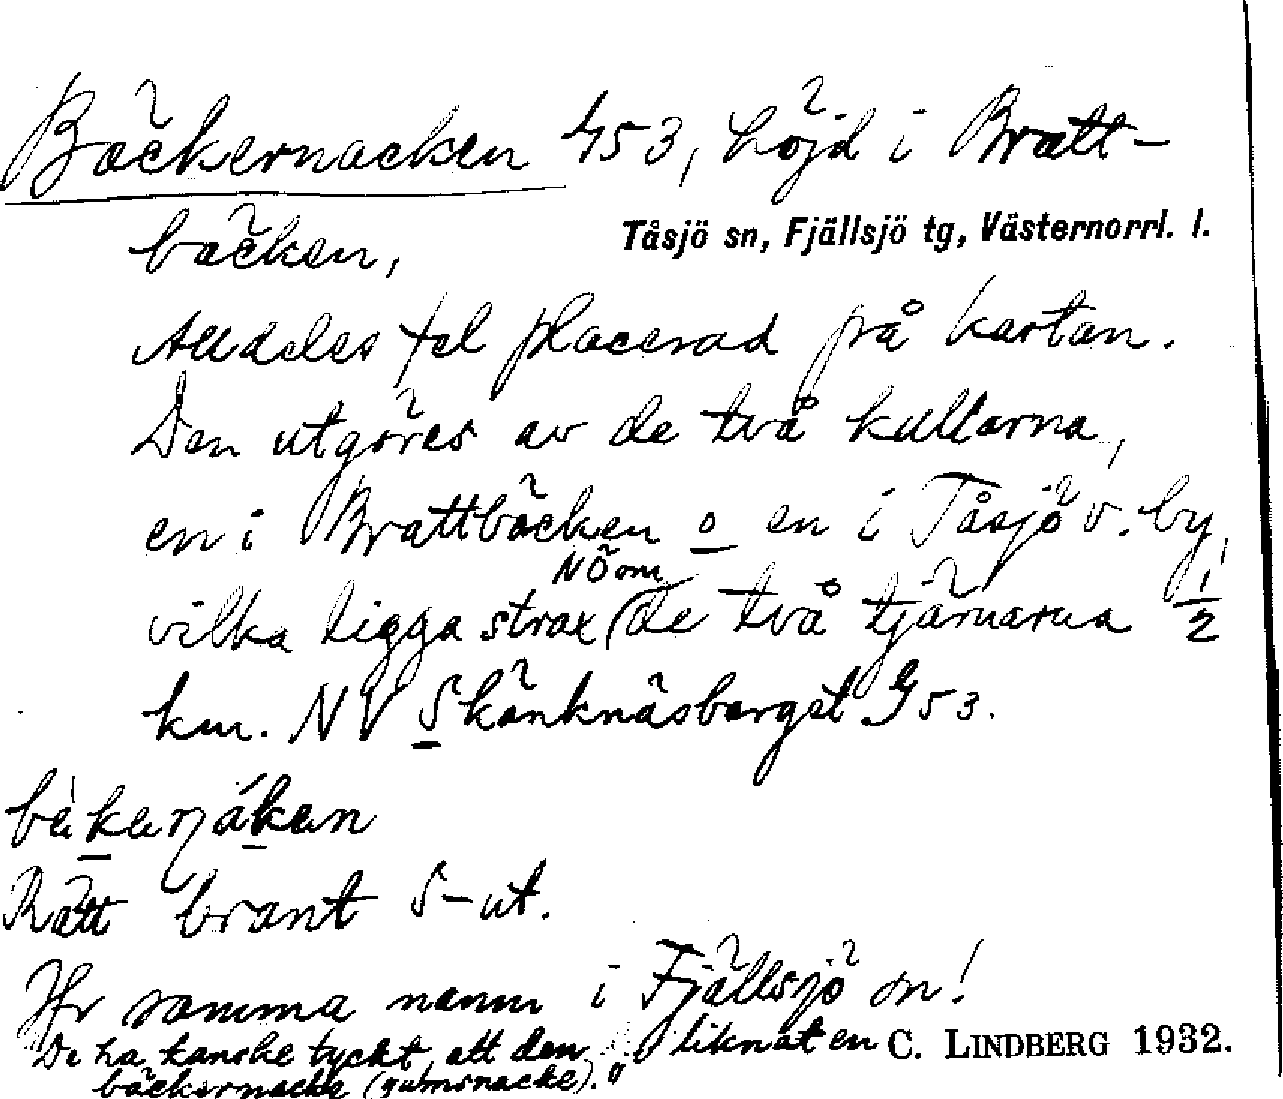 Bäckernacken G53, höjd i Bratt-
bäcken,
Tåsjö sn, Fjällsjö tg, Västernorrl. l.
Alldeles fel placerad på kartan.
Den utgöres av de två kullarna,
en i Brattbäcken o en i Tåsjö v. by,
NÖ om
vilka ligga strax de två tjärnarna 1/2
km. NV Skänknäsberget G53.
Rätt brant S-ut.
Jfr samma namn i Fjällsjö sn!
"De ha kanske tyckt att den liknat en
C. LINDBERG 1932.
bäckernacke (gumsnacke)."